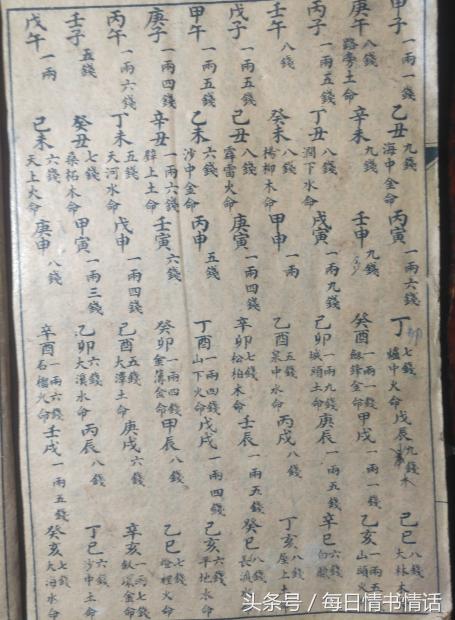 甲子 一兩一錢 乙丑 九錢 海中金命 丙寅 一兩六錢 丁卯 七錢 爐中火命 戊辰 九錢 木 己巳 八錢 大林木
庚午 八錢 路旁土命 辛未 九錢 壬申 九錢 癸酉 一兩一錢 劍鋒金命 甲戌 一兩一錢 乙亥 一兩五 山頭火
丙子 一兩五錢 丁丑 八錢 澗下水命 戊寅 一兩九錢 己卯 一兩九錢 城頭土命 庚辰 一兩五錢 辛巳 六錢 白臘
壬午 八錢 癸未 八錢 楊柳木命 甲申 一兩 乙酉 五錢 泉中水命 丙戌 八錢 丁亥 八錢 屋上土
戊子 一兩五錢 己丑 八錢 霹雷火命 庚寅 一兩四錢 辛卯 七錢 松柏木命 壬辰 一兩五錢 癸巳 八錢 長流水
甲午 一兩五錢 乙未 六錢 沙中金命 丙申 五錢 丁酉 一兩四錢 山下火命 戊戌 一兩四錢 己亥 六錢 平地木命
庚子 一兩四錢 辛丑 一兩六錢 壁上土命 壬寅 六錢 癸卯 一兩四錢 金薄金命 甲辰 八錢 乙巳 七錢 燈裡火命
丙午 一兩六錢 丁未 五錢 天河水命 戊申 一兩四錢 己酉 五錢 大澤土命 庚戌 六錢 辛亥 一兩七錢 釵環金命
壬子 五錢 癸丑 七錢 桑柘木命 甲寅 一兩三錢 乙卯 六錢 大溪水命 丙辰 八錢 丁巳 六錢 沙中土命
戊午 一兩 己未 六錢 天上火命 庚申 八錢 辛酉 一兩六錢 石榴火命 壬戌 一兩五錢 癸亥 七錢 大海水命
头条号 / 每日情书情话